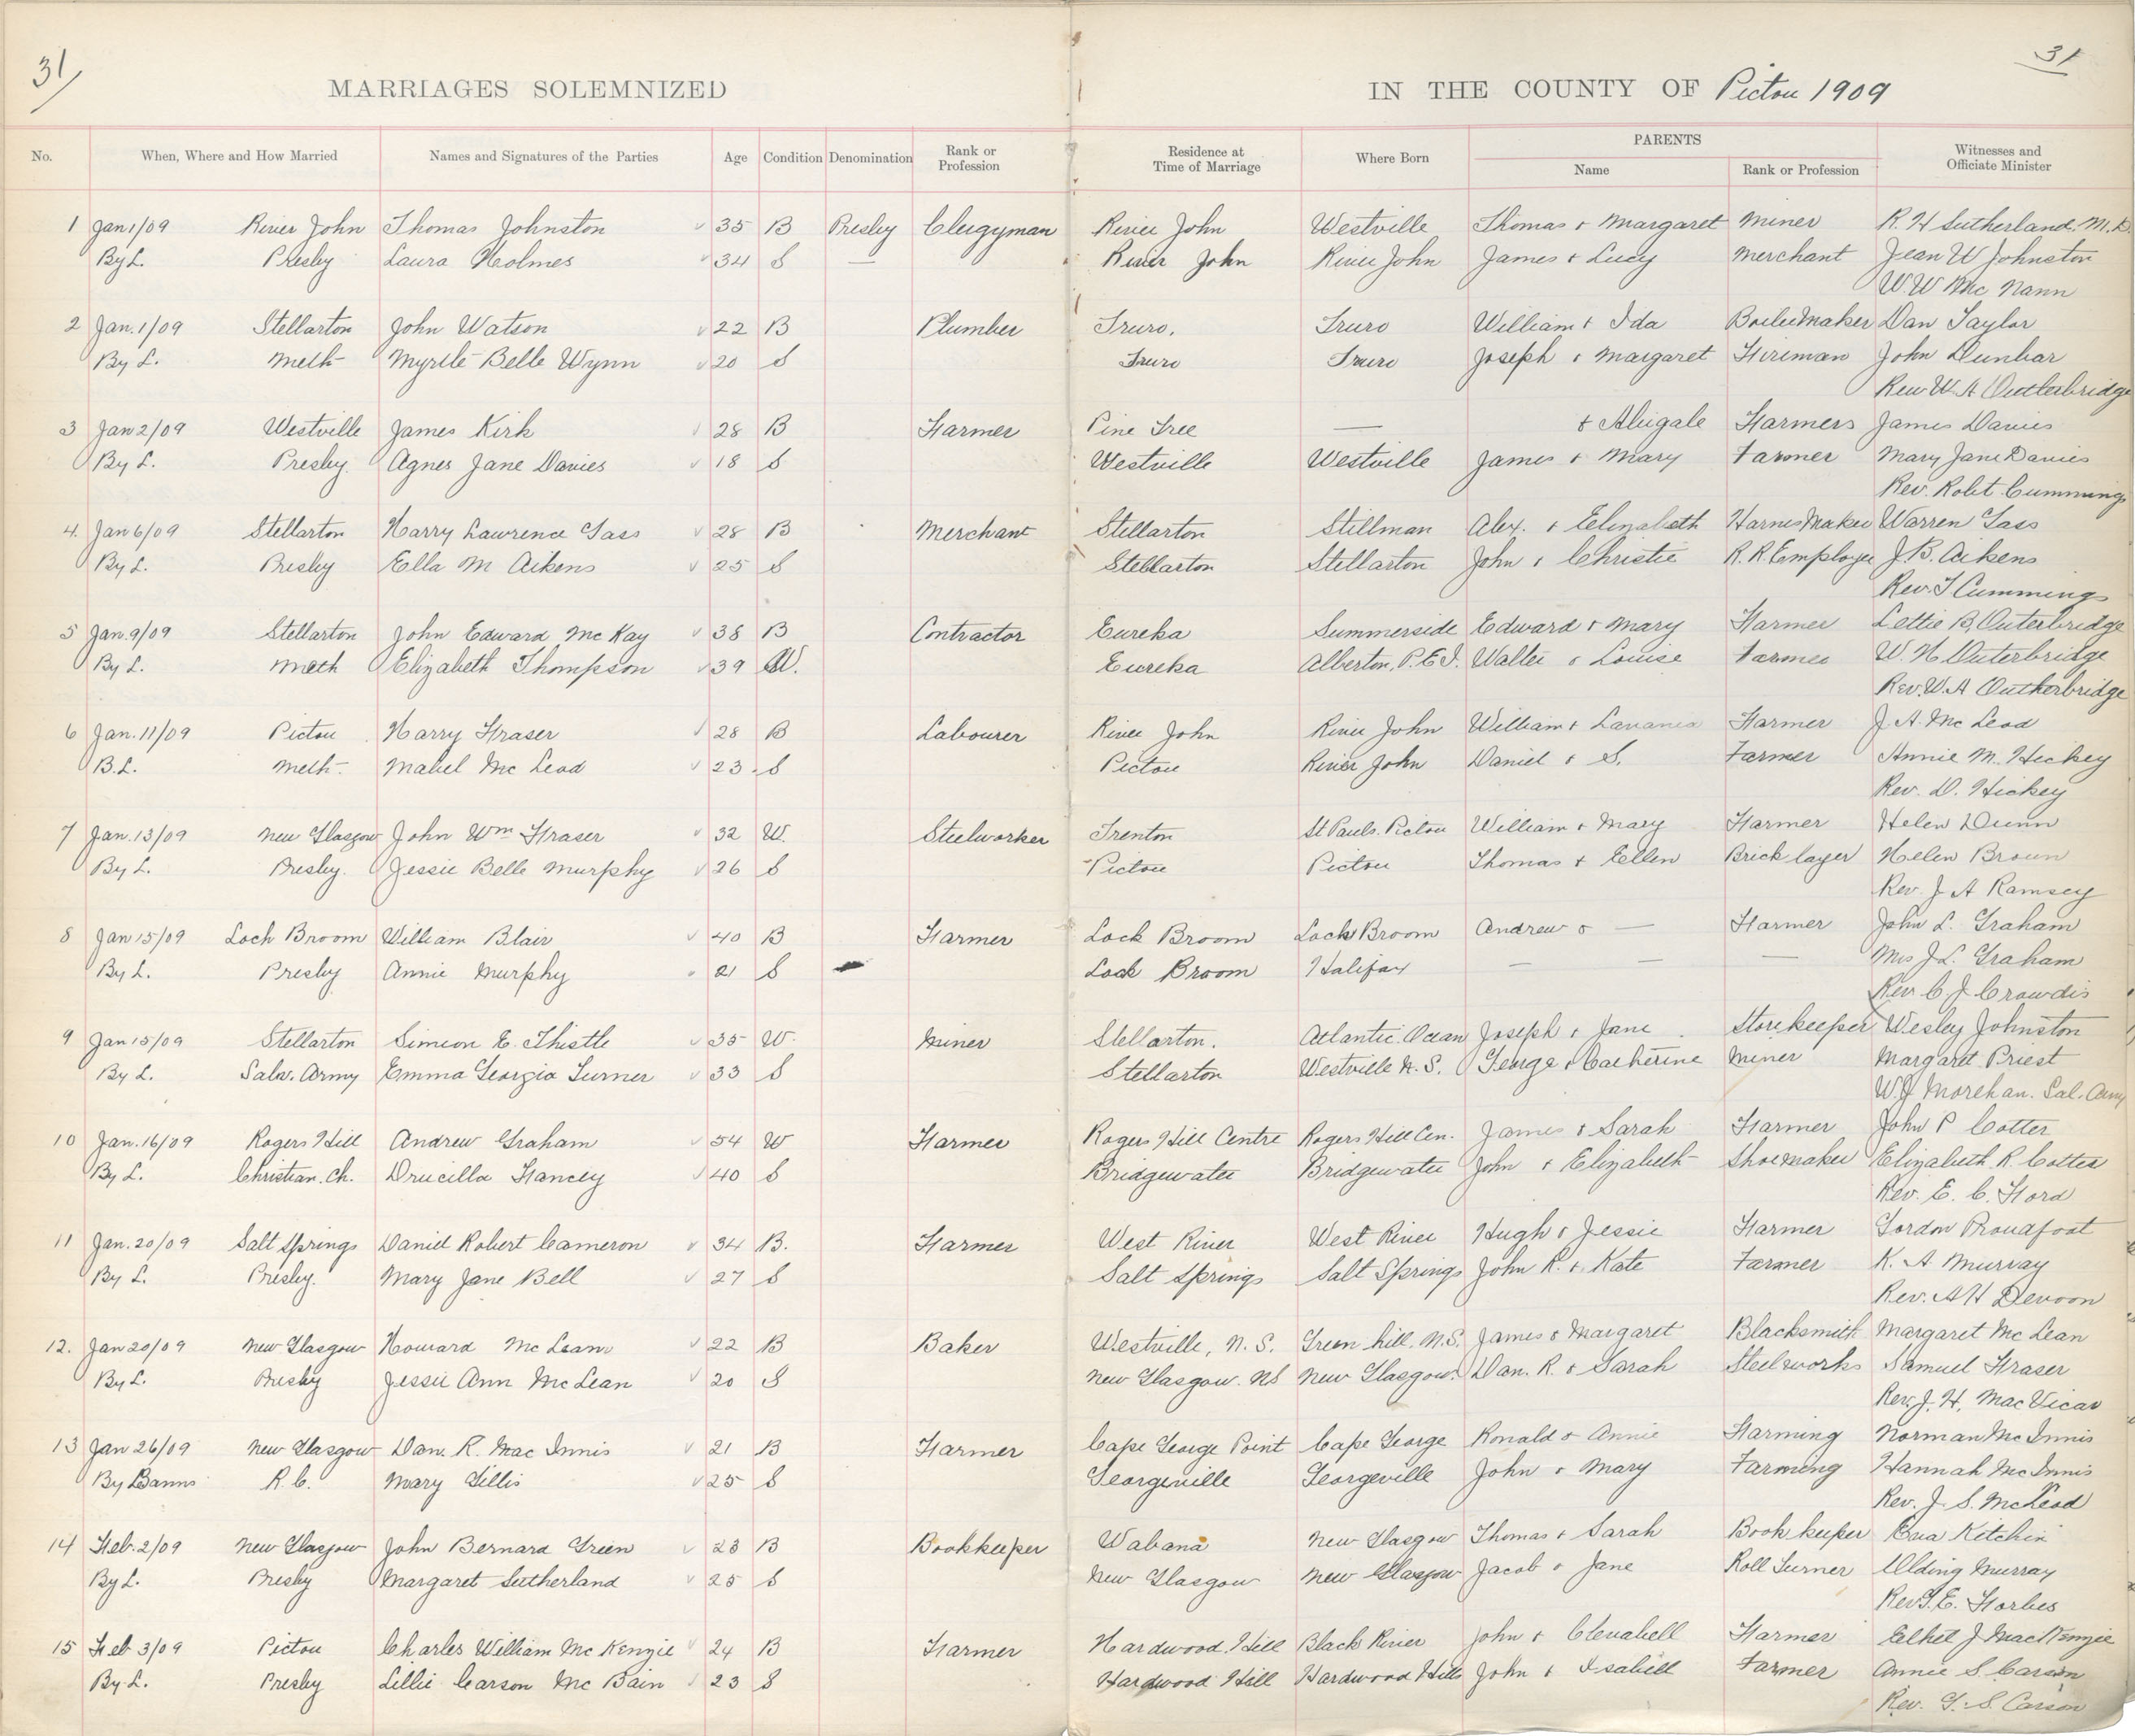 31/ 31
MARRIAGES SOLEMNIZED IN THE COUNTY OF Pictou 1909
No. When, Where and How Married Names and Signatures of the Parties Age Condition Denomination Rank or Profession Residence at Time of Marriage Where Born PARENTS Name Rank or Profession Witnesses and Officiate Minister
1 Jan 1/09 River John Thomas Johnston 35 B Presby Clergyman River John Westville Thomas + Margaret Miner R. H Sutherland, M.D.
By L. Presby Laura Holmes 34 S — River John River John James + Lucy Merchant Jean W Johnston
W W Mc Nann
2 Jan. 1/09 Stellarton John Watson 22 B Plumber Truro. Truro William + Ida BoilerMaker Dan Taylor
By L. Meth Myrtle Belle Wynn 20 S Truro Truro Joseph + Margaret Fireman John Dunbar
Rev W. A Outterbridge
3 Jan 2/09 Westville James Kirk 28 B Farmer Pine Tree — + Abigale Farmers James Davies
By L. Presby. Agnes Jane Davies 18 S Westville Westville James + Mary Farmer Mary Jane Davies
Rev. Robt. Cummings
4. Jan 6/09 Stellarton Harry Lawrence Gass 28 B Merchant Stellarton Stillman Alex. + Elizabeth HarnesMaker Warren Gass
By L. Presby Ella M Aikens 25 S Stellarton Stellarton John + Christie R. R Employee J. B. Aikens
Rev. T Cummings
5 Jan. 9/09 Stellarton John Edward Mc Kay 38 B Contractor Eureka Summerside Edward + Mary Farmer Lettie B. Outerbridge
By L. Meth Elizabeth Thompson 39 W. Eureka Alberton, P.E.I. Walter + Louise Farmer W. H Outerbridge
Rev. W. A Outherbridge
6 Jan. 11/09 Pictou Harry Fraser 28 B Labourer River John River John William + Lavania Farmer J. A. Mc Leod
B. L. Meth. Mabel Mc Leod 23 S Pictou River John Daniel + S. Farmer Annie M. Hickey
Rev. D. Hickey
7 Jan. 13/09 New Glasgow John Wm Fraser 32 W. Steelworker Trenton St Pauls. Pictou William + Mary Farmer Helen Dunn
By L. Presby. Jessie Belle Murphy 26 S Pictou Pictou Thomas + Ellen Brick layer Helen Brown
Rev. J A Ramsey
8 Jan 15/09 Loch Broom William Blair 40 B Farmer Lock Broom Lock Broom Andrew + — Farmer John L. Graham
By L. Presby Annie Murphy 21 S Lock Broom Halifax — — — Mrs J. L. Graham
Rev C J. Crowdis
9 Jan 15/09 Stellarton Simeon E. Thistle 35 W. Miner Stellarton. Atlantic Ocean Joseph + Jane Storekeeper Wesley Johnston
By L. Salv. Army Emma Georgia Turner 33 S Stellarton Westville N. S. George + Catherine Miner Margaret Priest
W. J Morehan. Sal. Army
10 Jan. 16/09 Rogers Hill Andrew Graham 54 W Farmer Rogers Hill Centre Rogers Hill Cen. James + Sarah Farmer John P Cotter
By L. Christian. Ch. Drucilla Fancey 40 S Bridgewater Bridgewater John + Elizabeth Shoemaker Elizabeth R. Cotter
Rev. E. C. Ford
11 Jan. 20/09 Salt Springs Daniel Robert Cameron 34 B. Farmer West River West River Hugh + Jessie Farmer Gordon Proudfoot
By L. Presby. Mary Jane Bell 27 S Salt Springs Salt Springs John R. + Kate Farmer K. A. Murray
Rev. A H Denoon
12. Jan 20/09 New Glasgow Howard Mc Lean 22 B Baker Westville, N. S. Green hill. N.S. James + Margaret Blacksmith Margaret Mc Lean
By L. Presby Jessie Ann Mc Lean 20 S New Glasgow. NS New Glasgow. Dan. R. + Sarah Steelworks Samuel Fraser
Rev. J. H. Mac Vicar
13 Jan 26/09 New Glasgow Dan. R. Mac Innis 21 B Farmer Cape George Point Cape George Ronald + Annie Farming Norman McInnis
By Banns R. C. Mary Gillis 25 S Georgeville Georgeville John + Mary Farming Hannah McInnis
Rev. J. S. McLeod
14 Feb. 2/09 New Glasgow John Bernard Green 23 B Bookkeeper Wabana New Glasgow Thomas + Sarah Book keeper Kitchin
By L. Presby Margaret Sutherland 25 S New Glasgow New Glasgow Jacob + Jane Roll Turner Murray
Rev. E. Forbes
15 Feb 3/09 Pictou Charles William Mc Kenzie 24 B Farmer Hardwood Hill Black River John + Clenabell Farmer Ethel J MacKenzie
By L. Presby Lillie Carson Mc Bain 23 S Hardwood Hill Hardwood Hills John + Isabell Farmer Annie S. Carson
Rev. G. S. Carson